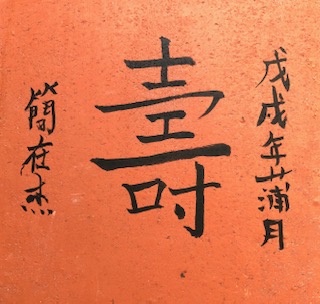 戊戌年蒲月
壽
簡在杰